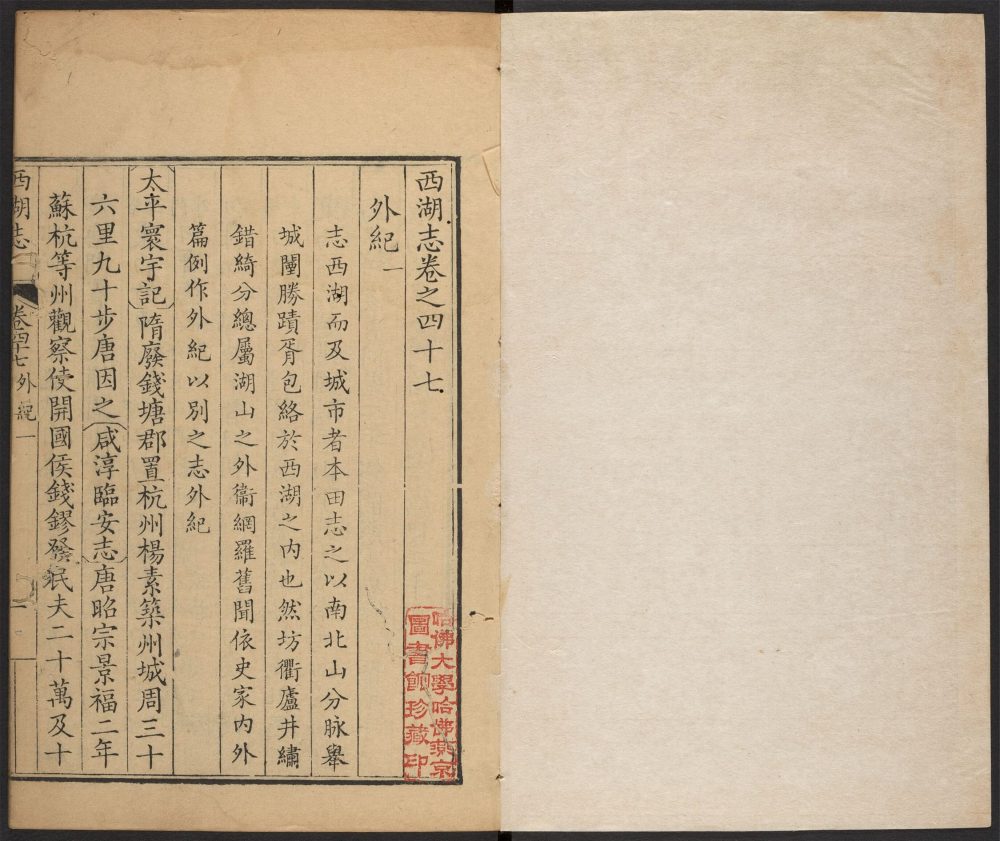 西湖志卷之四十七
外紀一
志西湖而及城市者本田志之以南北山分脉舉
城闉勝蹟胥包絡於西湖之内也然坊衢廬井繡
錯綺分總屬湖山之外衞網羅舊聞依史家内外
篇例作外紀以別之志外紀
太平寰宇記隋廢錢塘郡置杭州楊素築州城周三十
六里九十步唐因之咸淳臨安志唐昭宗景福二年
蘇杭等州觀察使開國侯錢鏐發民夫二十萬及十
西湖志 卷四十七 外紀一 一
哈佛大學哈佛燕京
圖書館珍藏印